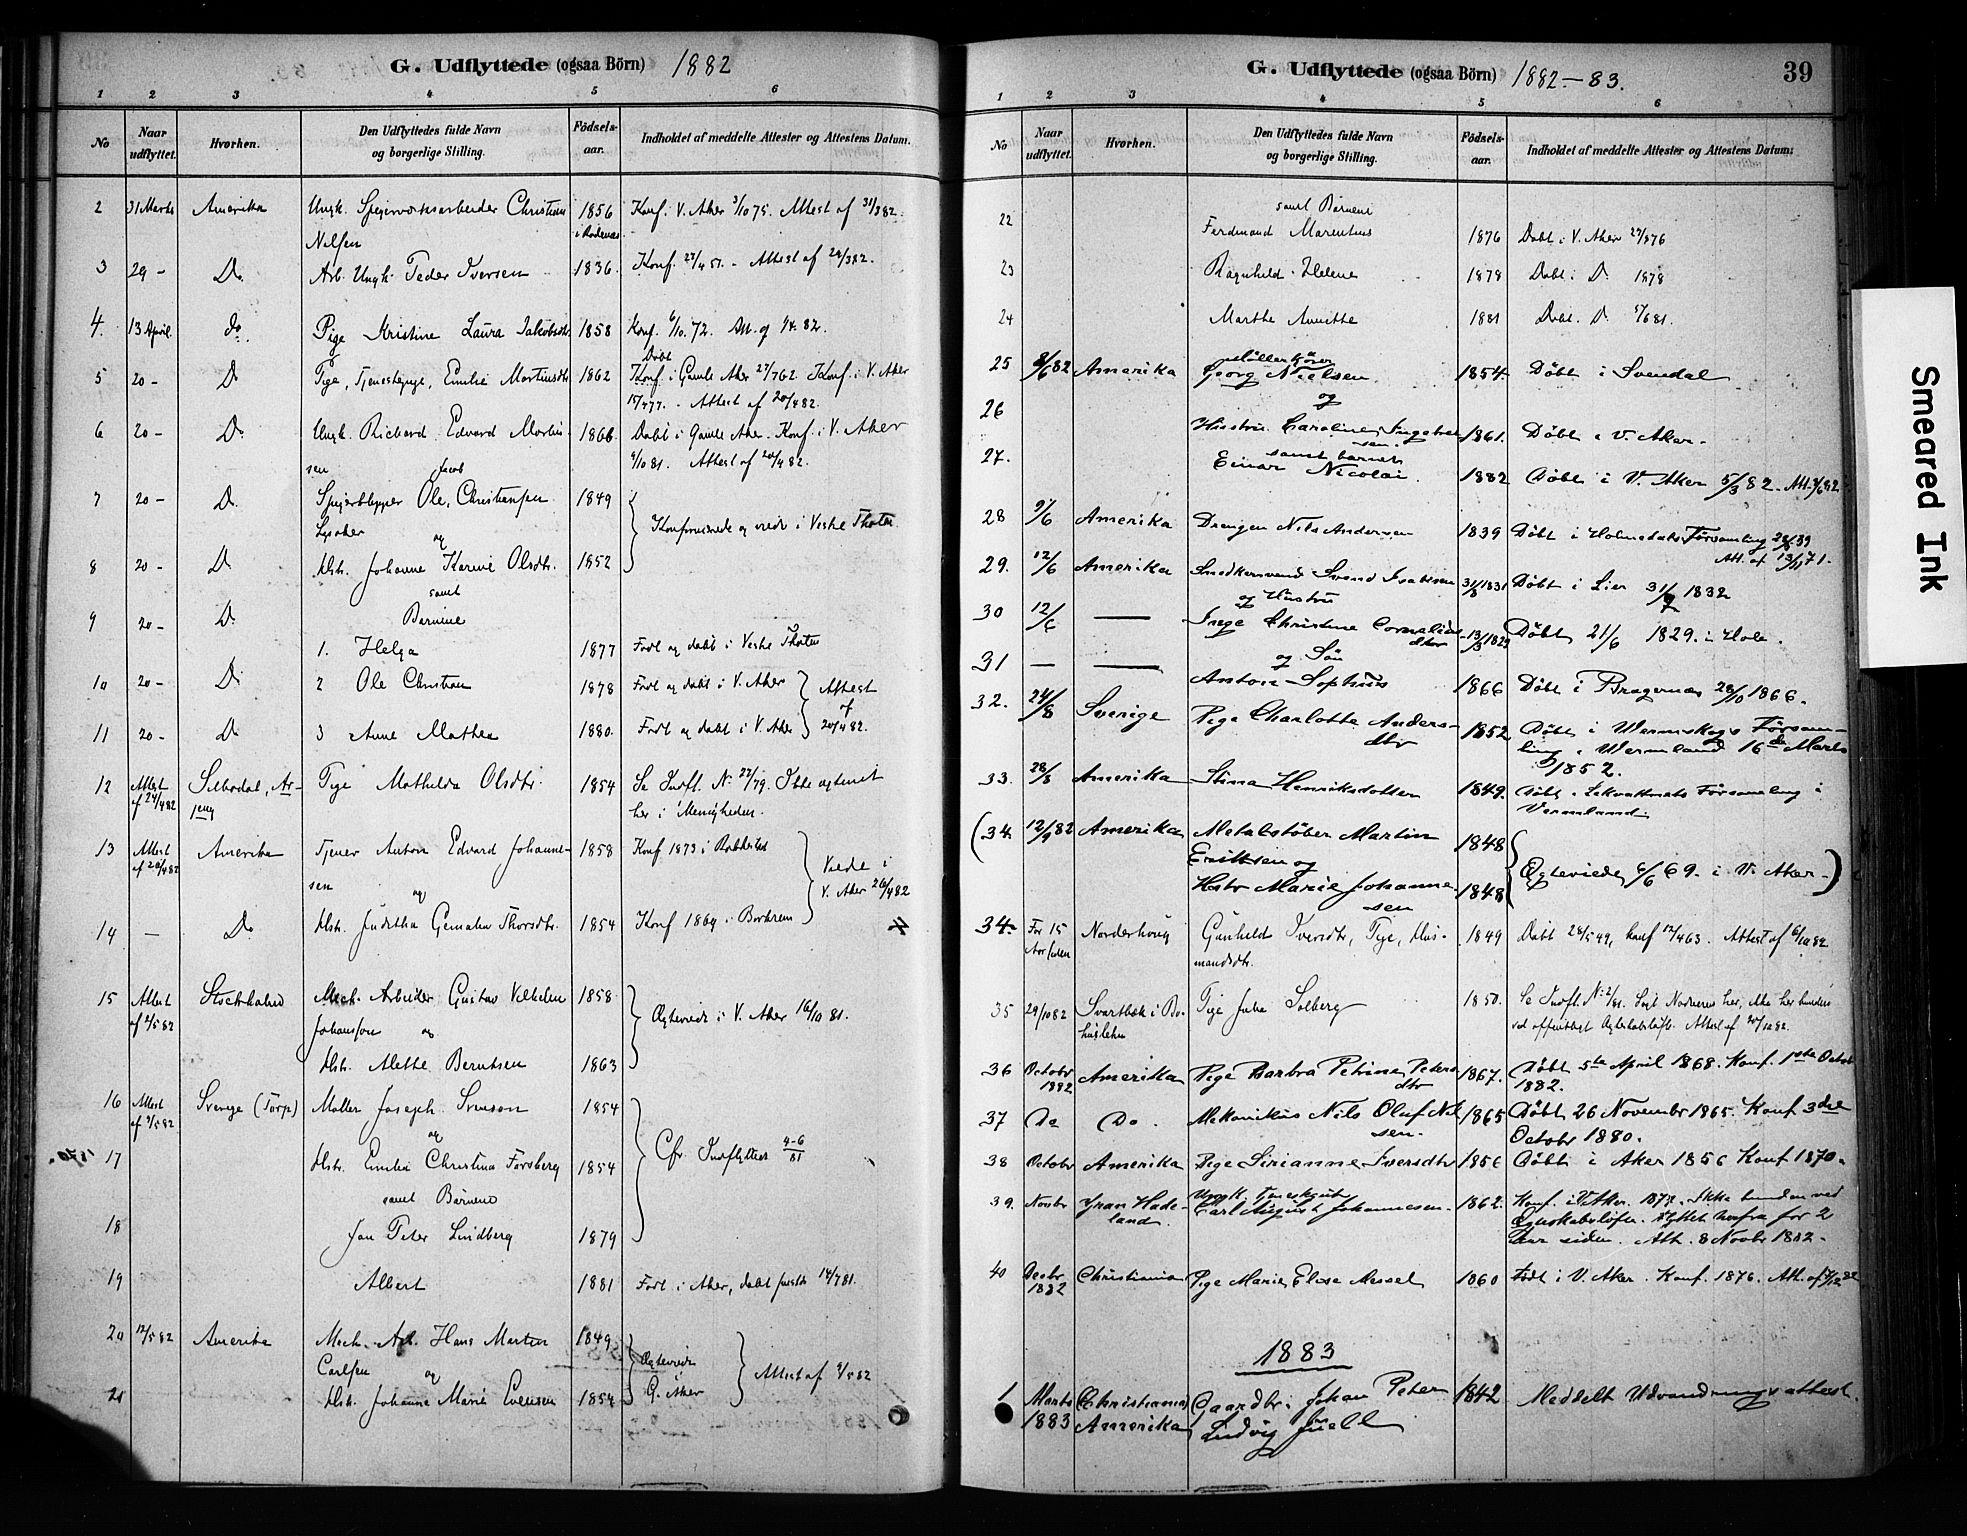 G. Udflyttede (ogsaa Börn) 1882
1 2 3 4 5 6
No
Naar udflyttet.
Hvorhen.
Den Udflyttedes fulde Navn og borgerlige Stilling.
Födsels-aar.
Indholdet af meddelte Attester og Attestens Datum.
2 31 Marts Amerika Ungk. Christian 1856 Konf. V. Aker 3/10 75. Attest af 31/3 82.
Nilsen
3 29 - Do Arb. Ungk. Peder Iversen 1836. Konf. Attest af
4. 13 April. do. Pige Kristine Laura Jakobsdtr 1858 Konf. 6/10.72.
5 20- Do Pige, Emilie Martinsdtr 1862 Konf. i Gamle Aker Konf. i V. Aker
Attest af 20/4 82.
6 20- Do Ungk. Richard Edvard Martin- 1866. Døbt i Gamle Aker. Konf. i V. Aker
sen 81. Attest af 20/4 82.
7 20- Do Ole Jacob Christiansen 1849
Lysaker og
Konfirmerede og viede i Vestre Thoten
8 20- Do Hstr. Johanne Karine Olsdtr. 1852
samt
9 20- Do Børnene
1. Helga 1877 Født og døbt i Vestre Thoten
10 20- Do 2 Ole Christian 1878 Født og døbt i V. Aker
Attest af 20/4 82.
11 20- Do 3 Anne Mathea 1880. Født og døbt i V. Aker
12 Attest af 24/4 82 Pige Mathilda Olsdtr. 1854 Se Indfl. No 22/79. Ikke ægteviet
her i Menigheden.
13 Attest Amerika Tjener Anton Edvard Johanne- 1858 Konf 1873 i
sen og
Viede i V. Aker 26/4 82
14 — Do Hstr. Juditha Thorsdtr. 1854 Konf 1869 i
15 Attest af 2/5 82 Stockholm Mek. Arbeider Gustav Vilhelm 1858
Johansson og
Ægteviede i V. Aker 16/10 81.
Hstr. Mette Berntsen 1863
16 Attest af 3/5 82 Sverige (Torp) Møller Joseph Svenson 1854
og
17 Hstr. Emilie Christina Forsberg 1854
Cfr. Indflyttede 4-6/81
samt Børnene
18 Jan Peter Lindberg 1879
19 Albert 1881 Født i Aker, døbt
20 12/5 82 Amerika Mek. Arb. Hans Martin 1849
Carlsen og
Ægteviede G. Aker Attest af
21 Hstr. Johanne Marie Evensen 1854
G. Udflyttede (ogsaa Börn) 1882-83. 39
1 2 3 4 5 6
No
Naar udflyttet.
Hvorhen.
Den Udflyttedes fulde Navn og borgerlige Stilling.
Födsels-aar.
Indholdet af meddelte Attester og Attestens Datum:
samt Børnene
22 Ferdinand Marentius 1876 Døbt i V. Aker
23 Ragnhild Helene 1878 Døbt i Do 1878
24 Marthe Annette 1881 Døbt. Do
25 8/6 82 Amerika Møllerkjører
Georg Nielsen 1854. Døbt i Svendal
og
26 Hustru Caroline 1861. Døbt i V. Aker.
27. samt barnet
Einar Nicolai 1882 Døbt i V. Aker 5/3 82.
28 9/6 Amerika Drengen Nils Andersen 1839 Døbt i Holmedals Forsamling
Att. af
29. 12/6 Amerika Snedkersvend Svend 31/8 1831 Døbt i Lier 1832
og Hustru
30 12/6 —— Inge Christine Cornelius- dtr 13/3 1829 Døbt 21/6 1829. i Hole.
og Søn
31 — —— Anton Sophus 1866 Døbt i Bragernæs 28/10 1866.
32. 24/8 Sverige Pige Charlotte Anders- 1852 Døbt i Wermskogs Forsam-
dtr ling i Wermland 16de Marts
1852.
33. 28/8 Amerika Stina Henriksdotter 1849. Døbt i Forsamling i
Vermland.
(34. 12/9 82 Amerika Metalstøber Martin 1848
Eriksen og
Ægteviede 6/6 69. i V. Aker.)
Hstr Marie Johanne- 1848
sen
34. For 15 Aar siden Norderhoug Gunhild Iversdtr, Pige, Hus- 1849 Døbt 28/5 49, konf 12/4 63. Attest af 6/10 82
mandsdtr.
35 29/10 82 Svartbæk i Bo- Pige Julie Solberg 1850. Se Indfl. No 2/81.
huslehn
36 Octobr 1882 Amerika Pige Barbra Petrine Peters- 1867. Døbt 5te April 1868. Konf. 1ste Octobr
dtr 1882.
37 Do Do. Mekanikus Nils Oluf Nil- 1865 Døbt 26 Novembr 1865. Konf 3die
sen. Octobr 1880.
38 Octobr Amerika Pige Sirianne Iversdtr 1856 Døbt i Aker 1856 Konf 1870.
39. Novbr Gran Hade- Carl August Johannesen. 1862. Konf. i V. Aker. Ikke bunden ved
land. Egteskabsløfte. flyttet herfra for 2
Aar siden. Att. 8 Novbr 1882.
40 Decbr 1882 Christiania Pige Marie Elise Messel 1860 Født i V. Aker. Konf. 1876.
1883
1 Marts 1883 (Christiania) Amerika Gaardbr. Johan Peter 1842 Meddelt Udvandringsattest.
Ludvig Juell
Smeared Ink